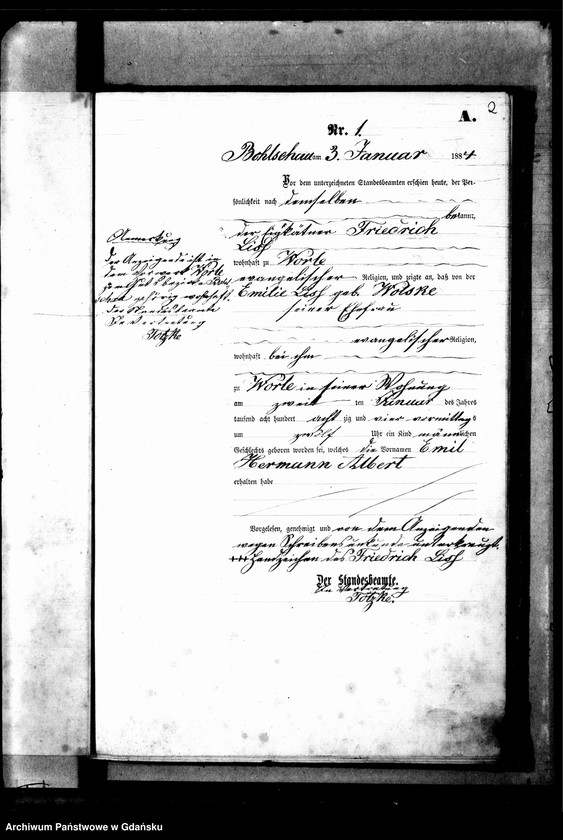 A.
2
Nr. 1.
Bohlschau am 3. Januar 1884
Vor dem unterzeichneten Standesbeamten erschien heute, der Per-
sönlichkeit nach demselben
bekannt,
der Eigkätner Friedrich
Lißs
wohnhaft zu Worle
evangelischer Religion, und zeigte an, daß von der
Emilie Lißs geb. Wolske
seiner Ehefrau
evangelischer Religion,
wohnhaft bei ihm
zu Worle in seiner Wohnung
am zweiten Januar des Jahres
tausend acht hundert achtzig und vier vormittags
um zwölf Uhr ein Kind männlichen
Geschlechts geboren worden sei, welches die Vornamen Emil
Hermann Albert
erhalten habe
Vorgelesen, genehmigt und von dem Anzeigenden
wegen Schreibensunkunde unterkreuzt.
+++ Handzeichen des Friedrich Lißs
Der Standesbeamte.
In Vertretung
Totzke.
Anmerkung
Der Anzeigende ist in
dem Vorwerk Worle
zum Gutsbezirk Bohl-
schau gehörig wohnhaft.
Der Standesbeamte
In Vertretung
Totzke
Archiwum Państwowe w Gdańsku